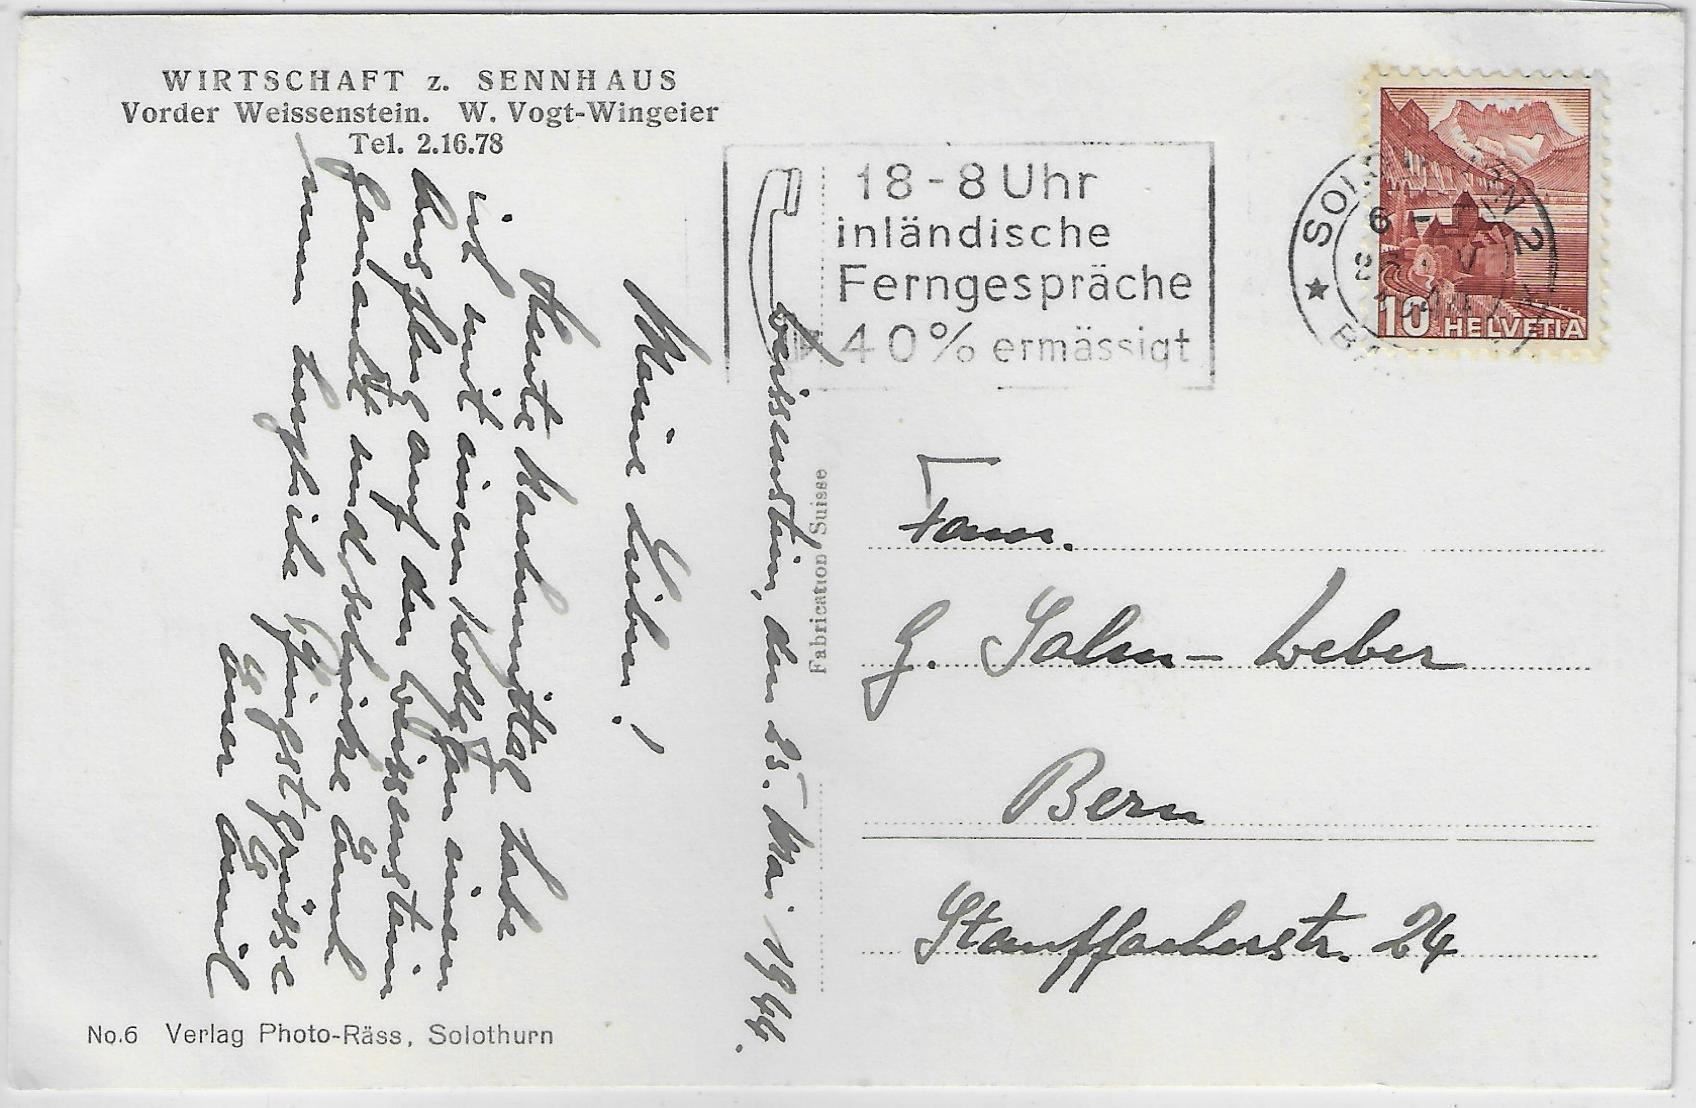 WIRTSCHAFT z. SENNHAUS
Vorder Weissenstein. W. Vogt-Wingeier
Tel. 2.16.78
18-8 Uhr
inländische
Ferngespräche
40% ermässigt
10 HELVETIA
SOLOTHURN 2
Weissenstein, den 25. Mai 1944.
Meine Lieben!
Heute Nachmittag habe
ich mit einem Kollegen einen
Ausflug auf den Weissenstein
gemacht und schicke Euch
nun herzliche Pfingstgrüsse
Euer Emil
Fabrication Suisse
Fam.
G. Salm-Weber
Bern
Stauffacherstr. 24
No.6 Verlag Photo-Räss, Solothurn